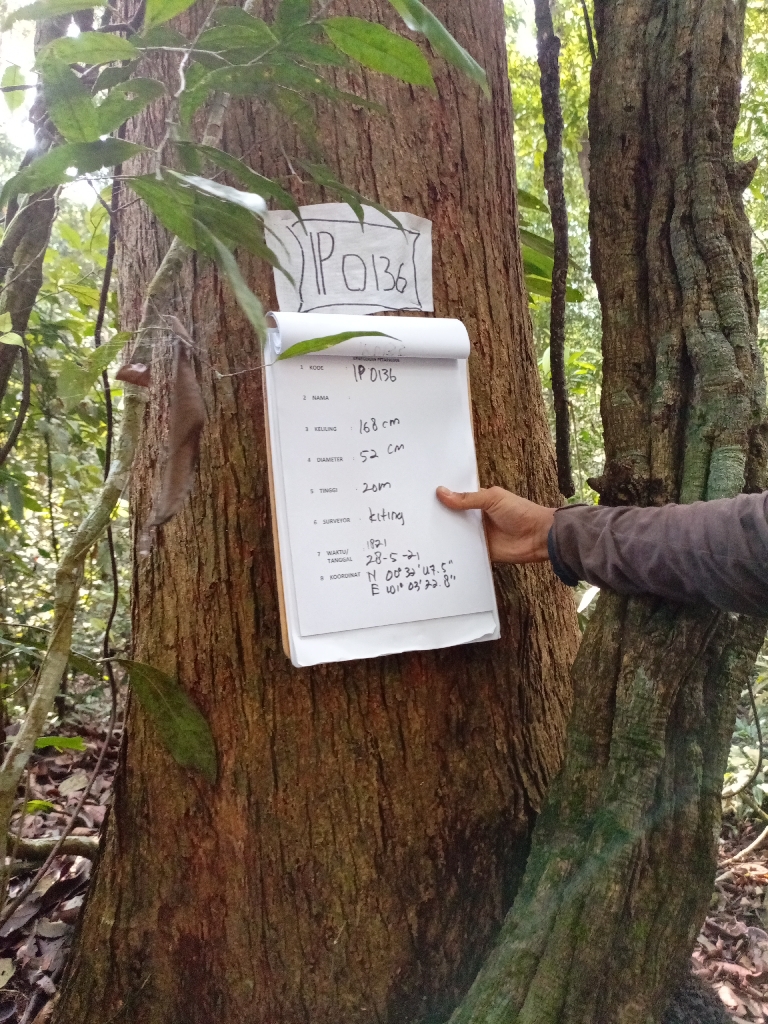 IP 0136
1 KODE IP 0136
2 NAMA
3 KELILING : 168 cm
4 DIAMETER : 52 cm
5 TINGGI : 20m
6 SURVEYOR : kiting
7 WAKTU/ 1821
TANGGAL 28-5-21
8 KOORDINAT N 00° 32' 47.5"
E 101° 03' 22.8"